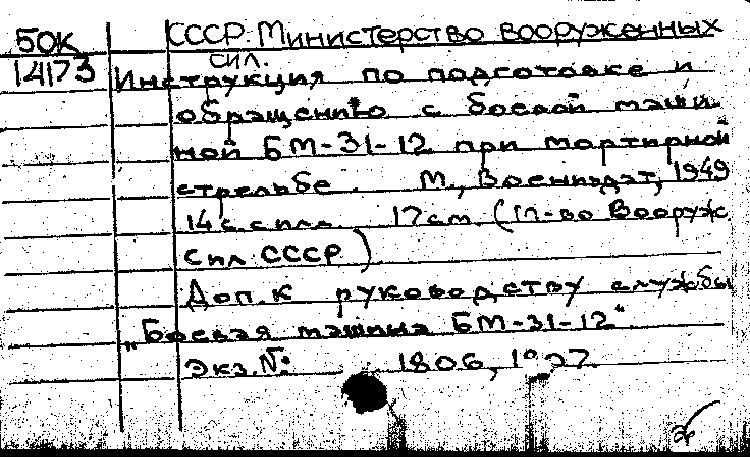 БОК СССР. Министерство вооруженных
сил.
14173 Инструкция по подготовке и
обращению с боевой маши-
ной БМ-31-12 при мортирной
стрельбе. М., Воениздат, 1949
14 с. с илл. 17 см. (М-во Вооруж.
Сил СССР)
Доп. к руководству службы
„Боевая машина БМ-31-12"
Экз. № 1806,